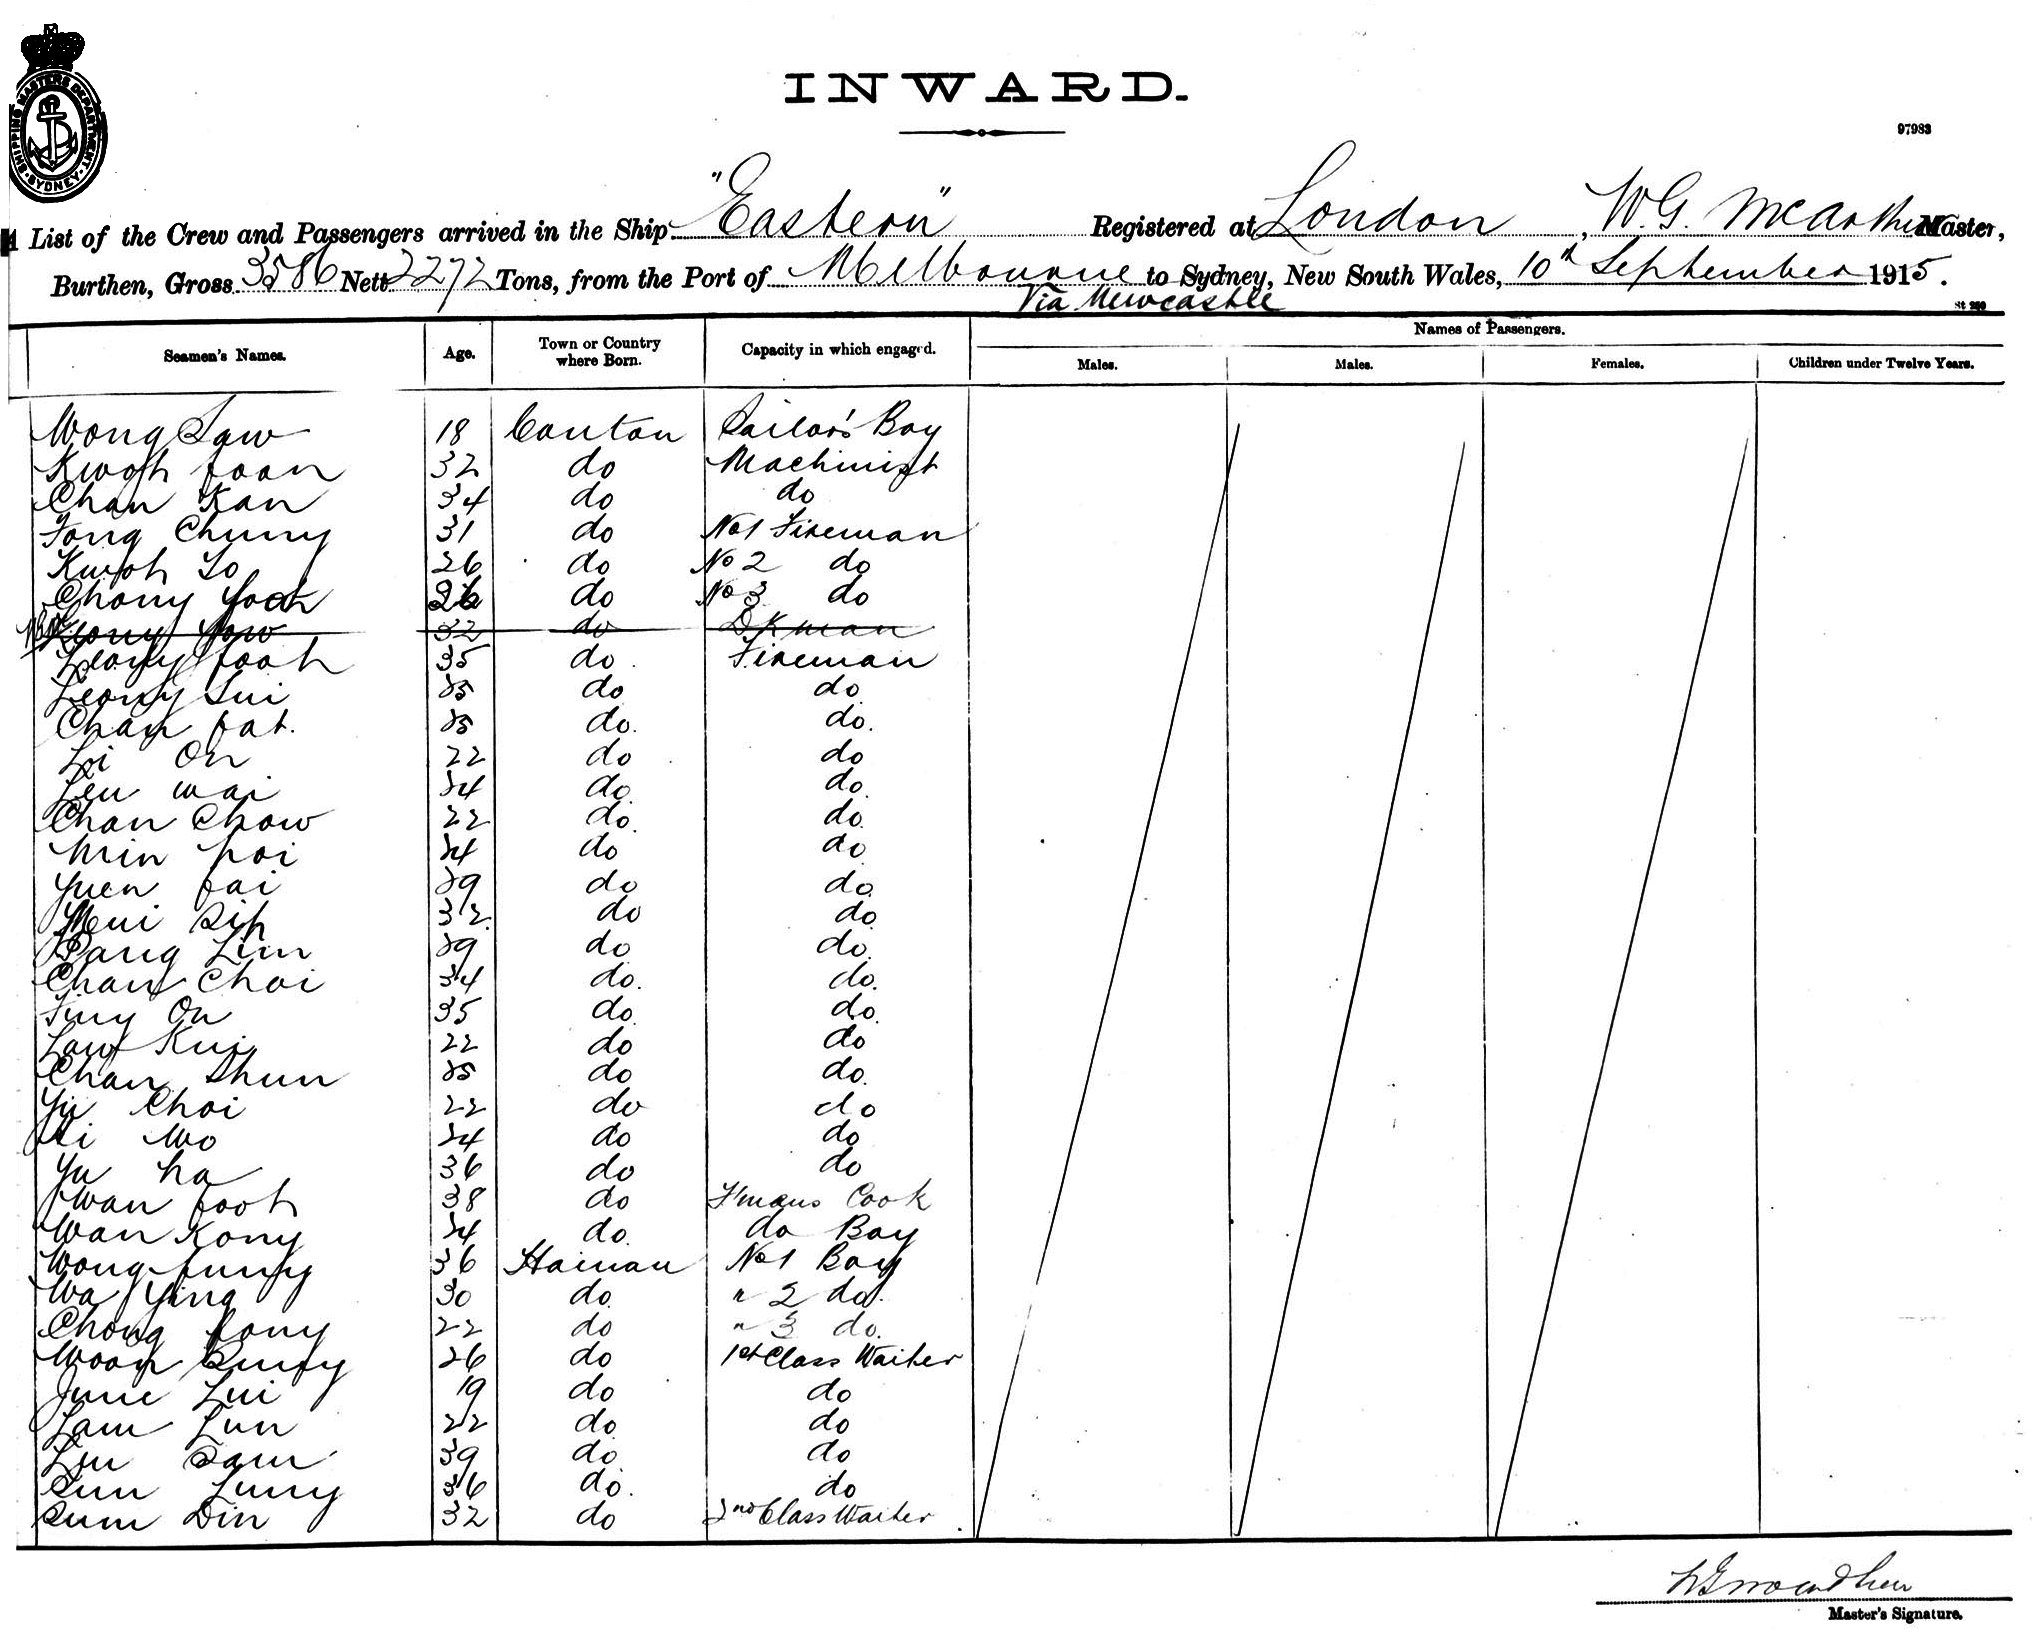 SHIPPING MASTERS DEPARTMENT · SYDNEY ·
INWARD.
97983
List of the Crew and Passengers arrived in the Ship "Eastern" Registered at London, W.G. McArthur Master,
Burthen, Gross 3586 Nett 2272 Tons, from the Port of Melbourne to Sydney, New South Wales, 10th September 1915.
Via Newcastle
Names of Passengers.
Seamen's Names. Age. Town or Country where Born. Capacity in which engaged. Males. Males. Females. Children under Twelve Years.
Wong Saw 18 Canton Sailors' Boy
Kwoh foon 32 do Machinist
Chan Kan 34 do do
Fong Chung 31 do No 1 Fireman
Kwoh So 26 do No 2 do
Chong Yook 26 do No 3 do
32 do Dkman
Leong fook 35 do Fireman
Leong Sui 35 do do
Chan fat. 35 do. do.
Li On 22 do do
Leu wai 34 do. do.
Chan Chow 22 do. do.
Min hoi 34 do do
Yuen fai 39 do do
Mui Sip 32 do do
Pang Lim 39 do do.
Chan Choi 34 do. do.
Ting On 35 do. do.
Law Kui 22 do do
Chan Shun 35 do do.
Yu Choi 22 do do
Li Wo 34 do do
Yu ha 36 do do
Wan fook 38 do F'mans Cook
Wan Kong 34 do. do Boy
Wong fung 36 Hainan No 1 Boy
Wa Ying 30 do. " 2 do.
Chong fong 22 do " 3 do.
Woon Sung 26 do 1st Class Waiter
June Lui 19 do do
Lam Lun 22 do. do
Lin Sam 39 do. do
Sun Lung 36 do. do
Sum Din 32 do 2nd Class Waiter
Master's Signature.